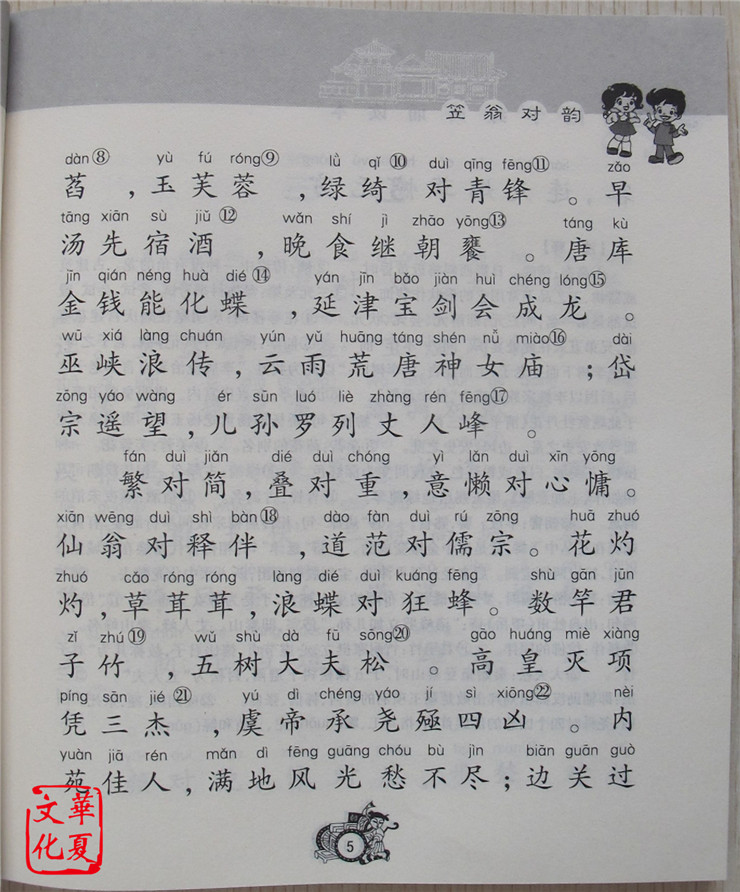 笠翁对韵
dàn⑧ yù fú róng⑨ lǜ qǐ⑩ duì qīng fēng⑪ zǎo
萏，玉芙蓉，绿绮对青锋。早
tāng xiān sù jiǔ⑫ wǎn shí jì zhāo yōng⑬ táng kù
汤先宿酒，晚食继朝饔。唐库
jīn qián néng huà dié⑭ yán jīn bǎo jiàn huì chéng lóng⑮
金钱能化蝶，延津宝剑会成龙。
wū xiá làng chuán yún yǔ huāng táng shén nǚ miào⑯ dài
巫峡浪传，云雨荒唐神女庙；岱
zōng yáo wàng ér sūn luó liè zhàng rén fēng⑰
宗遥望，儿孙罗列丈人峰。
fán duì jiǎn dié duì chóng yì lǎn duì xīn yōng
繁对简，叠对重，意懒对心慵。
xiān wēng duì shì bàn⑱ dào fàn duì rú zōng huā zhuó
仙翁对释伴，道范对儒宗。花灼
zhuó cǎo róng róng làng dié duì kuáng fēng shù gān jūn
灼，草茸茸，浪蝶对狂蜂。数竿君
zǐ zhú⑲ wǔ shù dà fū sōng⑳ gāo huáng miè xiàng
子竹，五树大夫松。高皇灭项
píng sān jié㉑ yú dì chéng yáo jí sì xiōng㉒ nèi
凭三杰，虞帝承尧殛四凶。内
yuàn jiā rén mǎn dì fēng guāng chóu bù jìn biān guān guò
苑佳人，满地风光愁不尽；边关过
5
華夏文化